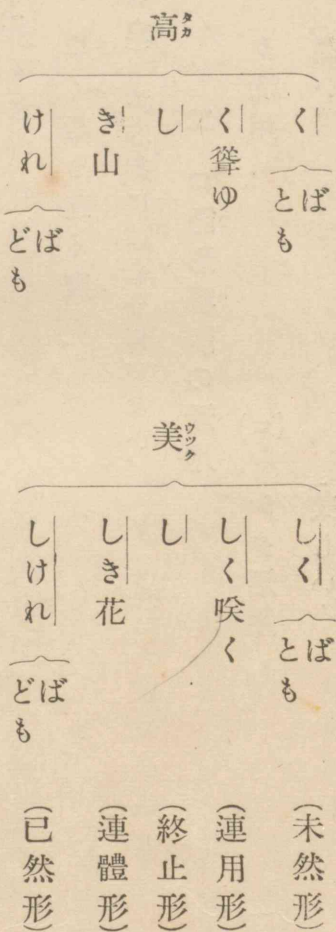 高タカ
く ばとも
く聳ゆ
し
き山
けれ ばども
美ウツク
しく ばとも
しく咲く
し
しき花
しけれ ばども
(未然形)
(連用形)
(終止形)
(連體形)
(已然形)